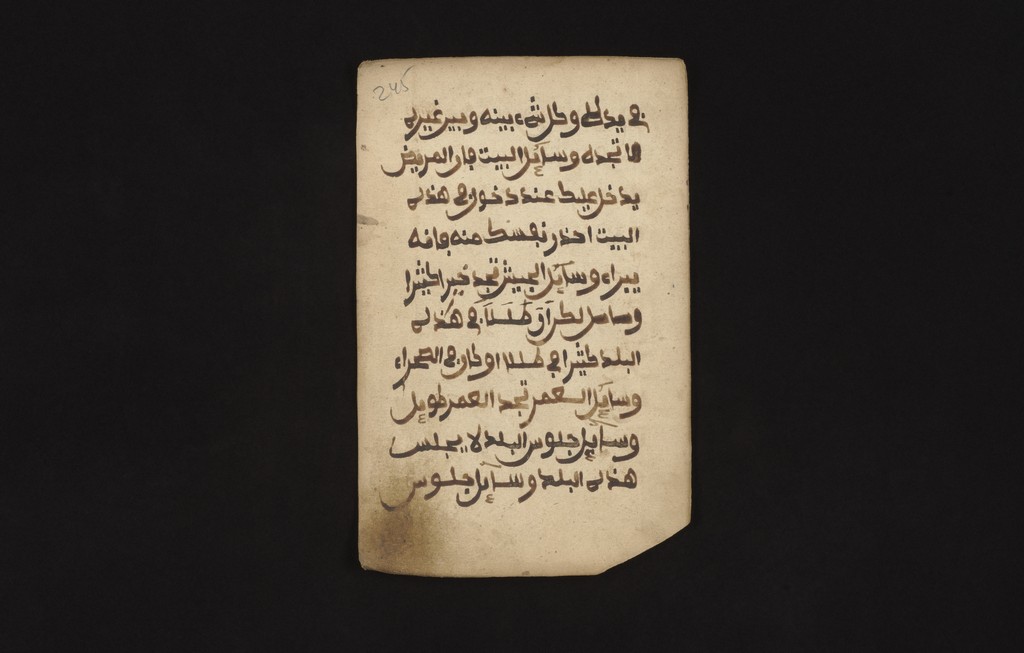 245
في يدك وكل شيء بينه وبين غيره
ما تجده وسآئل البيت فان المريض
يدخل عليك عند دخول في هذه
البيت احذر نفسك منه فانه
يبراء وسآئل الجيش تجد خيرا كثيرا
وسايل في هذه
البلد كثيرا في او كان في الصحراء
وسآئل السعمر تجد العمر طويل
وسآئل جلوس البلد لا يجلس
هذه البلد وسآئل جلوس